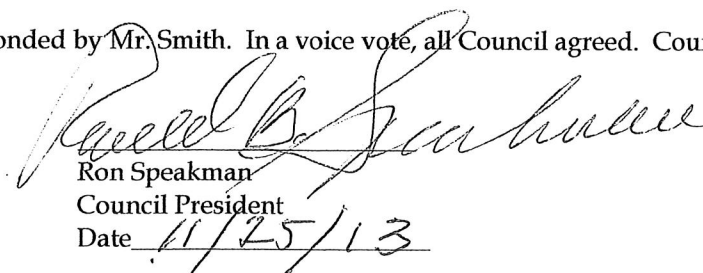 onded by Mr. Smith. In a voice vote, all Council agreed. Cou
Ronald B. Speakman
Ron Speakman
Council President
Date 11/25/13